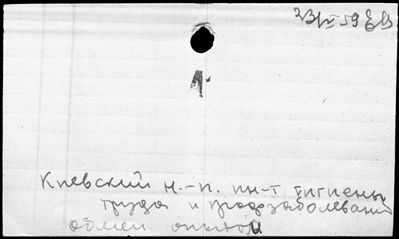 23/IV 59
Киевский н.-и. ин-т гигиены
труда и профзаболеваний
обмен опытом